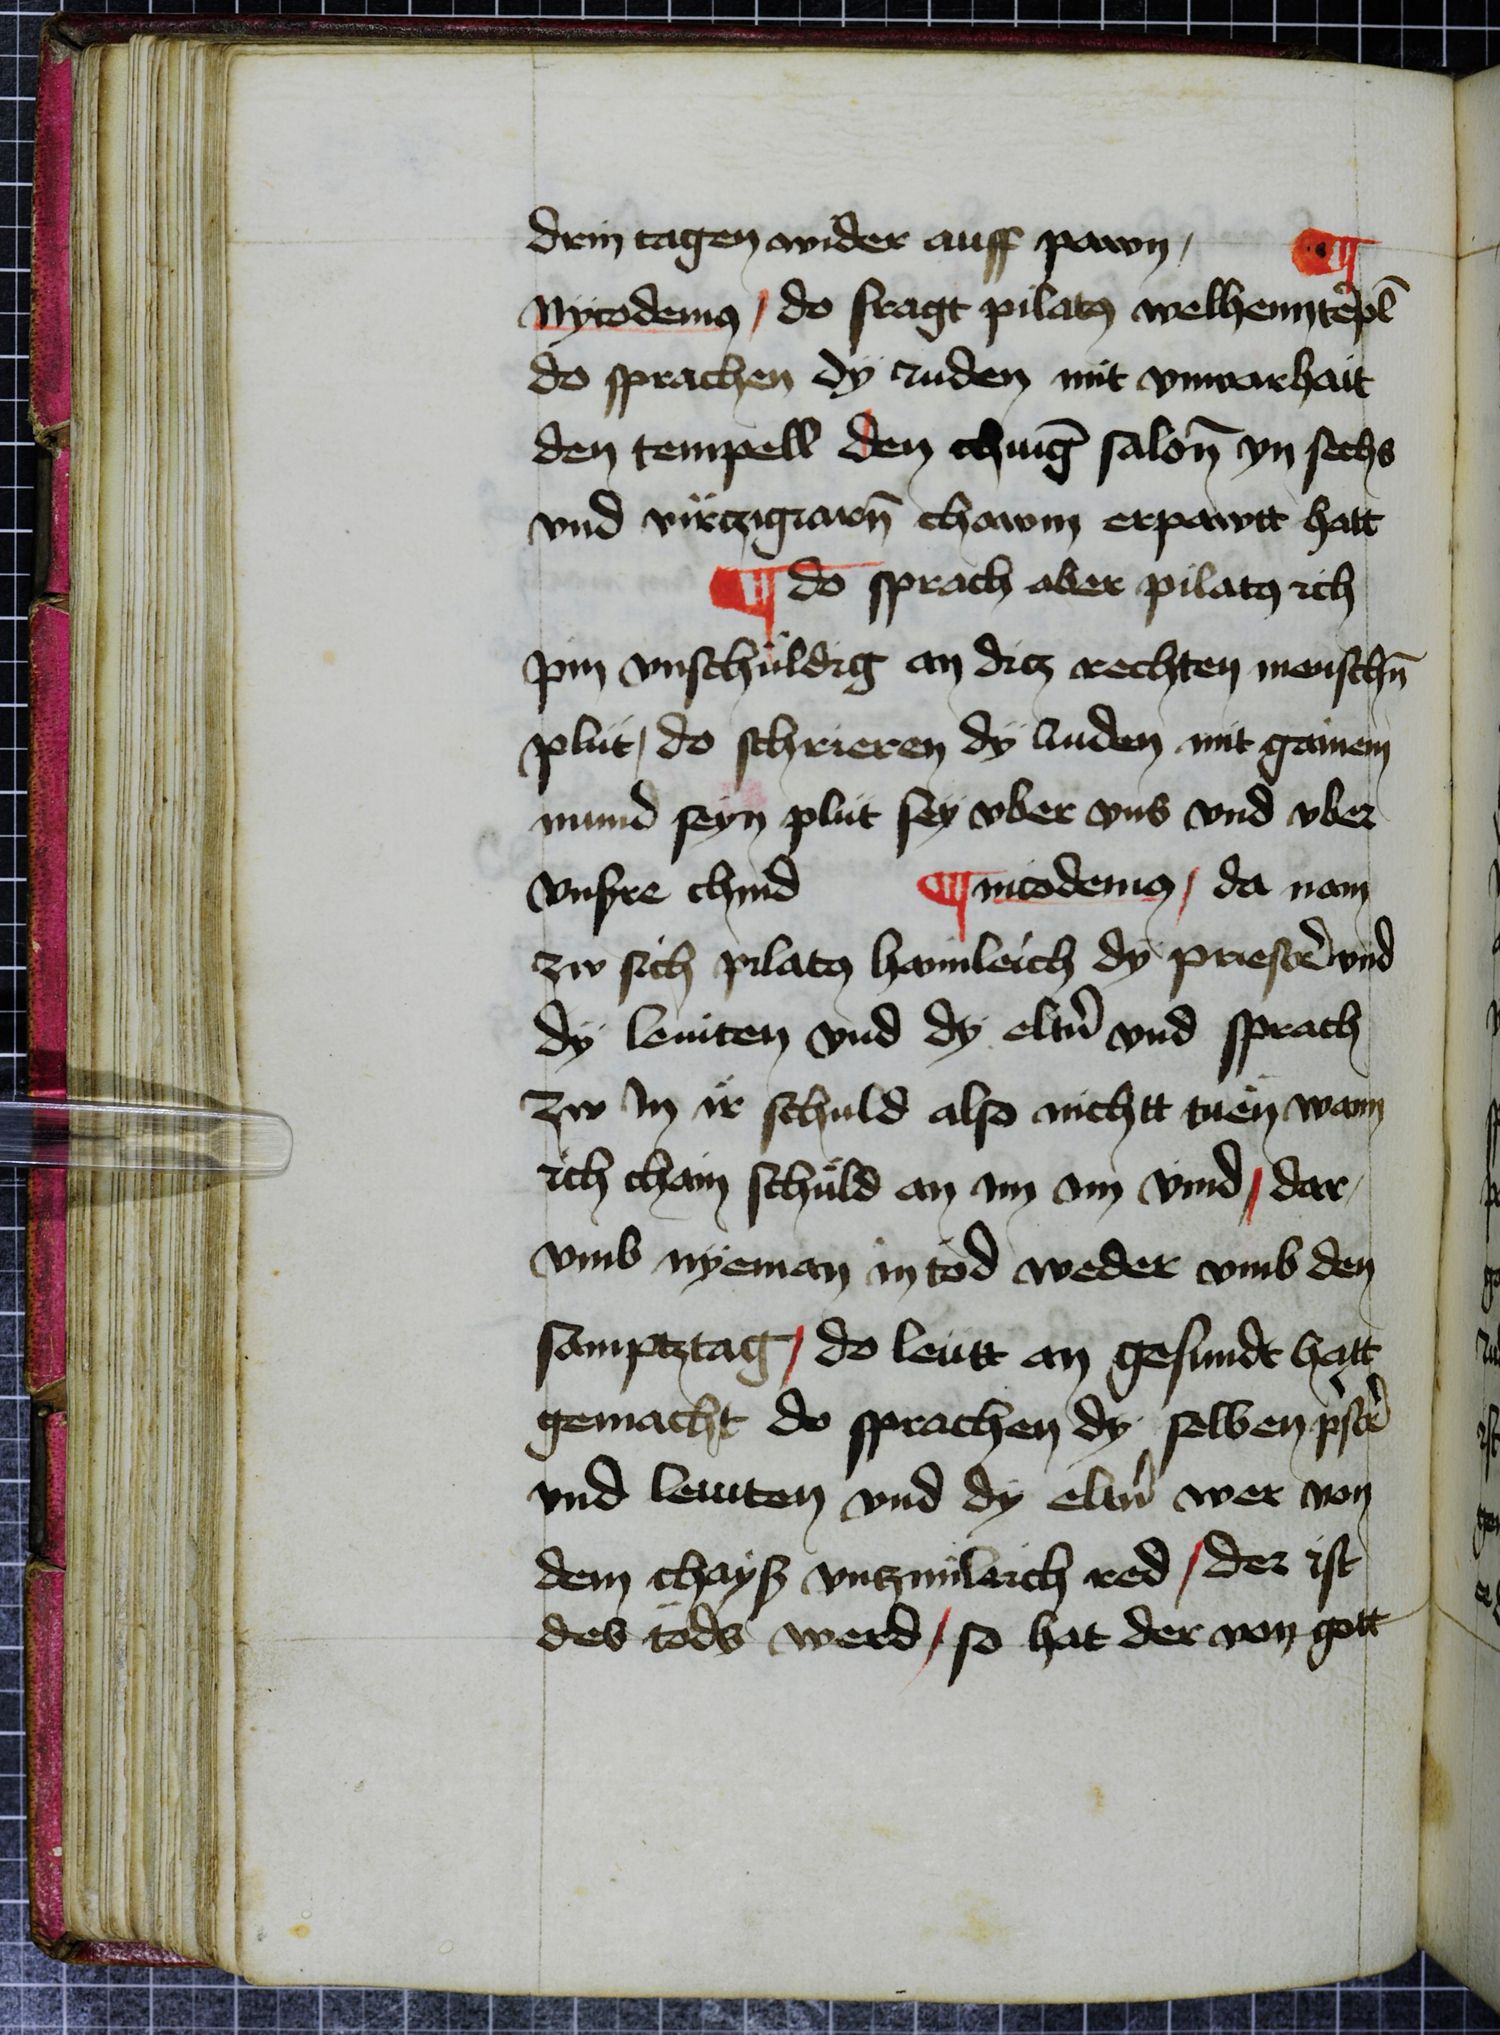 drin tagen wider auff pawn / ¶
Nycodemꝰ / do fragt pilatꝰ welhenn te̅pl̅
do sprachen dÿ iuden mit vnwarhait
den tempell den chuig̅ salon̅ yn sechs
vnd virczig iarn̅ chawm erpawtt hatt
¶ do sprach aber pilatꝰ ich
pin vnschüldig an dicz rechten menschn̅
plüt / do schrieren dÿ Juden mit gainem
mund seyn plüt seÿ vber vns vnd vber
vnsre chind ¶ nicodemꝰ / da nam
zw sich pilatꝰ haimleich dÿ priest̉ vnd
dÿ leuiten vnd dÿ elttn̉ vnd sprach
zw In ir schuld also nichtt tuen wann
ich chain schüld an im nin vind / dar
vmb nÿeman in töd weder vmb den
samptztag / do leütt an gesundt hatt
gemacht do sprachen dy selben pͥst̉
vnd leuiten vnd dy elttn̉ wer von
dem chayß vntzimleich red / der ist
des töds werd / so hat der von gott